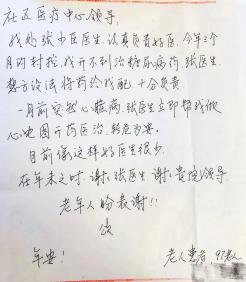 社区医疗中心领导:
我处张少臣医生,认真负责好医,今年三个
月的封控,我开不到治糖尿病药,张医生
想方设法将药给我配,十分负责
一月前突然心脏病,张医生立即帮我做
心电图开药医治,转危为安。
目前像这样好医生很少.
在年末之时,谢、张医生,谢、贵院领导.
老年人的最谢!!
颂
年安!
老人患者,97老人